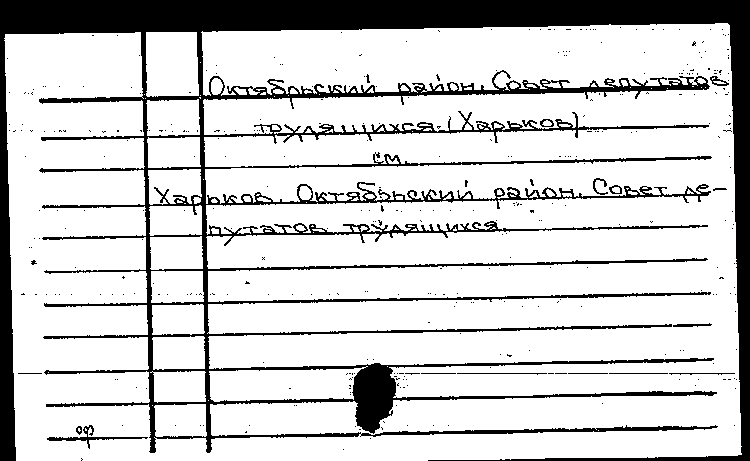 Октябрьский район. Совет депутатов
трудящихся. (Харьков)
см.
Харьков. Октябрьский район. Совет де-
путатов трудящихся.